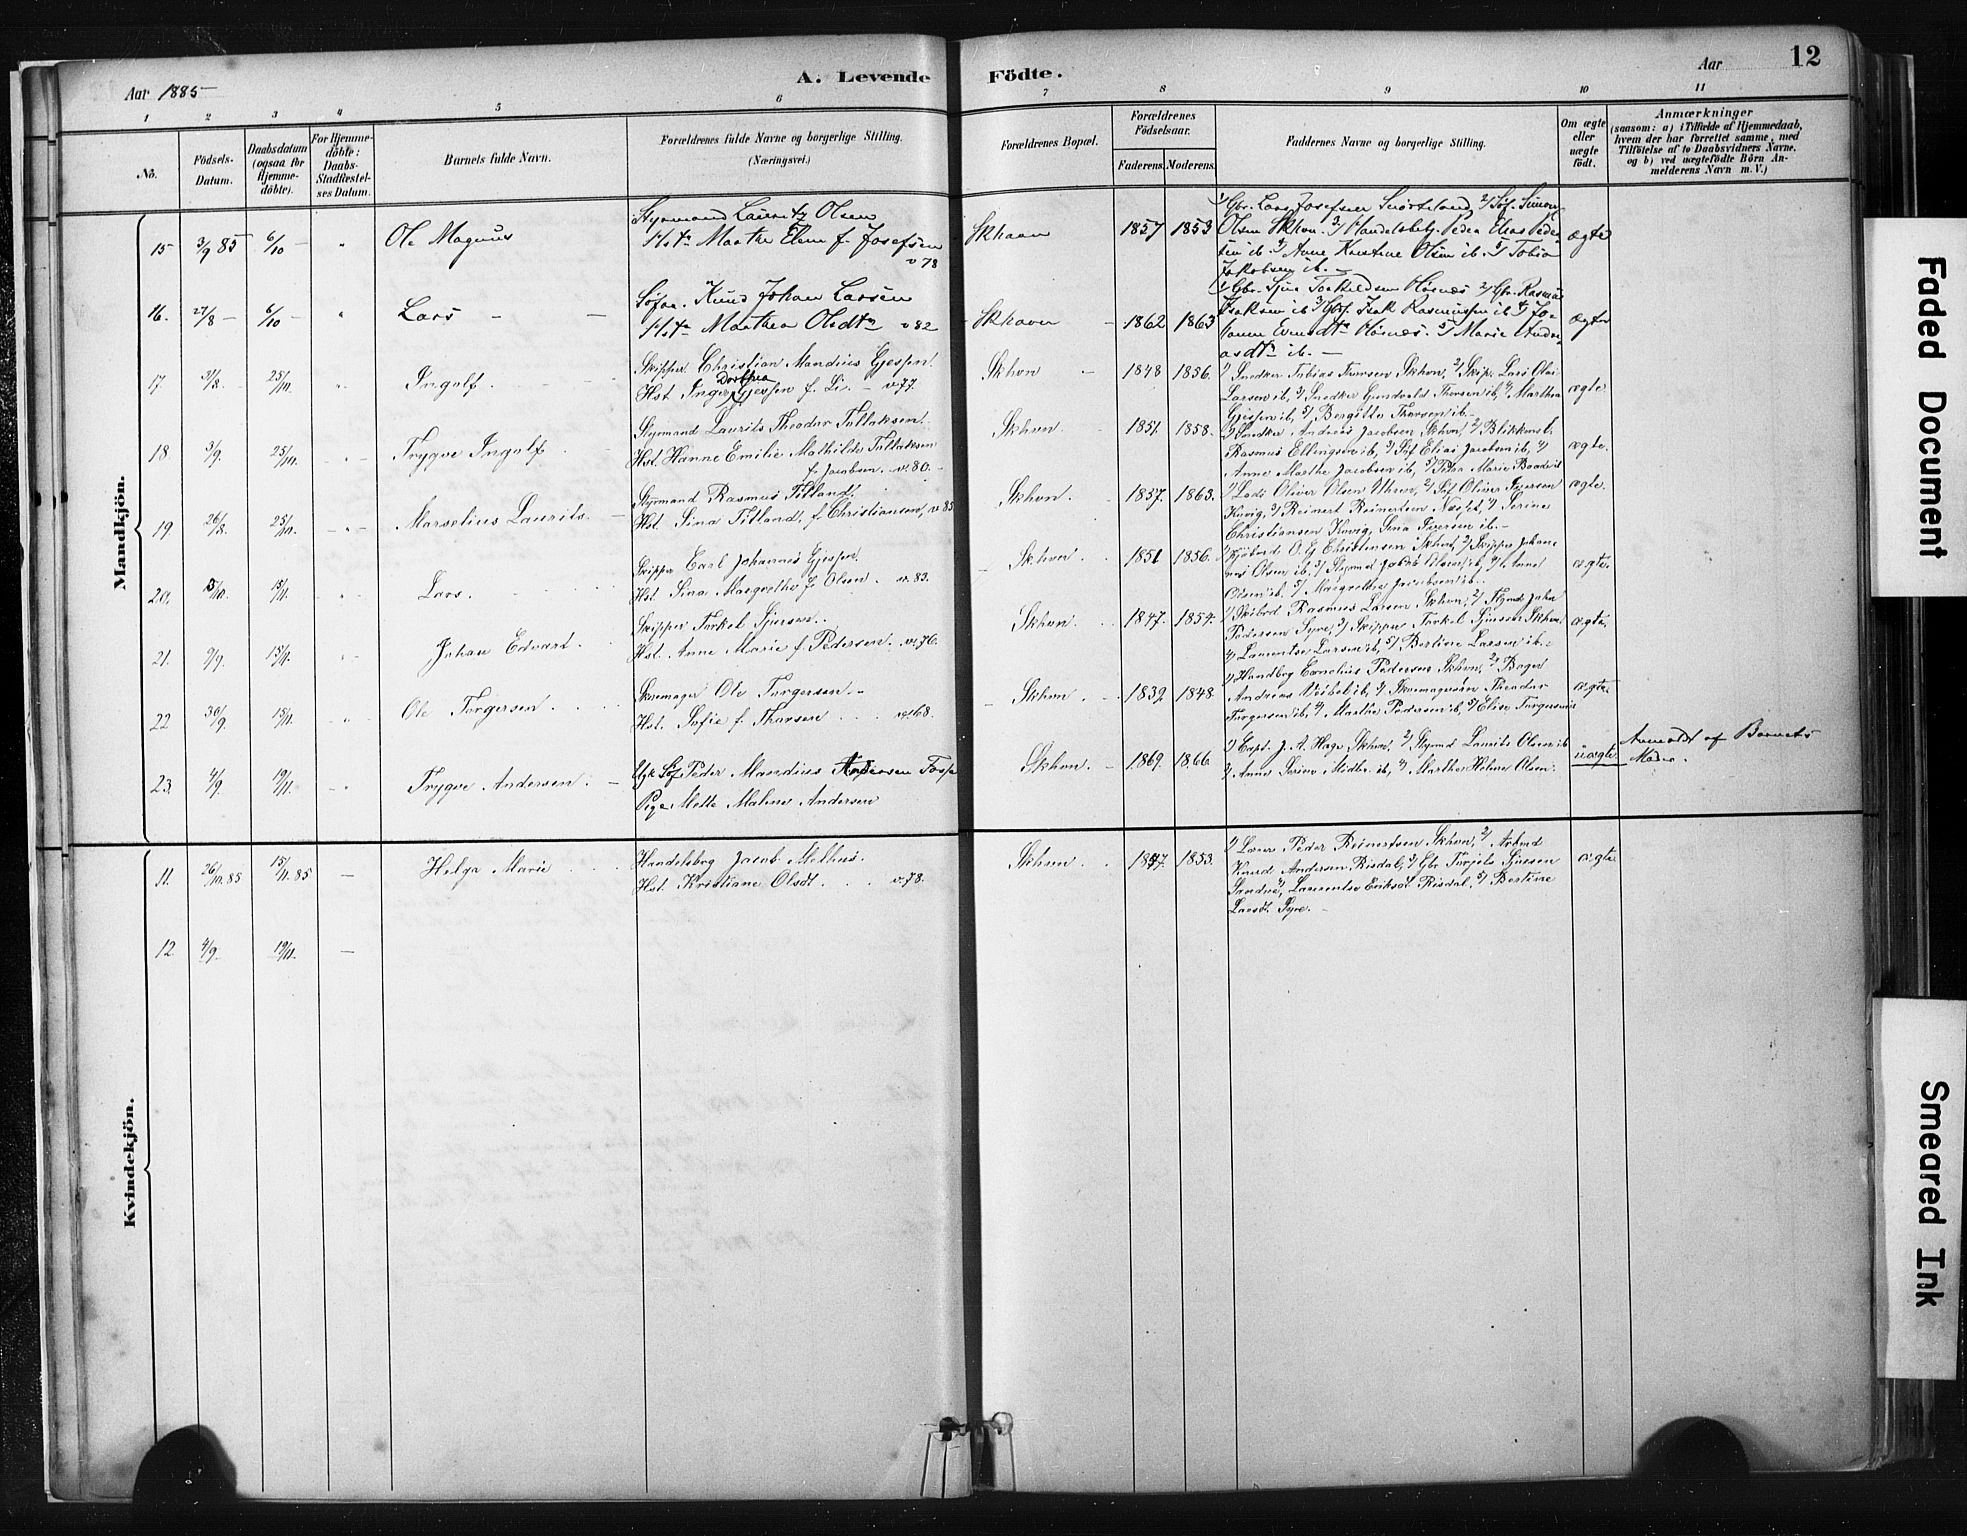 12
A. Levende Födte.
Aar 1885
Aar
1 2 3 4 5 6 7 8 9 10 11
No.
Födsels-Datum.
Daabsdatum (ogsaa for Hjemme-döbte).
For Hjemme-döbte: Daabs-Stadfæstel-ses Datum.
Barnets fulde Navn.
Forældrenes fulde Navne og borgerlige Stilling.
(Næringsvei.)
Forældrenes Bopæl.
Forældrenes Födselsaar.
Faderens. Moderens.
Faddernes Navne og borgerlige Stilling.
Om ægte eller uægte födt.
Anmærkninger
(saasom: a) i Tilfælde af Hjemmedaab,
hvem der har forrettet samme, med
Tilföielse af to Daabsvidners Navne,
og b) ved uægtefödte Börn An-
melderens Navn m. V.)
Mandkjön.
15 3/9 85 6/10 - " Ole Magnus
Styrmand Lauritz Olsen
H.st. Marthe Elene f. Josefsen
v 78
Skhavn 1857 1853
1/ Gbr. Lars Josefsen 2/ Søf. Simon
Olsen Skhvn. 3/ Handelsbetj. Peder Elias Peder-
sen ib. 4/ Anne Karstine Olsen ib. 5/ Tobia
Jakobsen ib. -
ægte
16. 27/8 - 6/10 - " Lars - -
Søfar. Knud Johan Larsen
H.st. Marthea Olsdtr v 82
Skhavn - 1862 1863
1/ Gbr. Sjur Torkildsen Høsnæs 2/ Gbr. Rasmus
Isaksen ib 3/ Gbsf. Isak Rasmussen ib 4/ Jo-
hanne Evensdtr Høsnæs. 5/ Marie Ander-
asdtr ib. -
ægte
17. 2/8. 25/10. " Ingolf.
Skipper Christian Mandius Gjessen.
Dorthea
Hst. Inger Gjessen f. Li. - v. 77.
Skhvn - 1848 1856.
1/ Snedker Tobias Thorsen Skhvn, 2/ Skip. Lars Olai
Larsen ib, 3/ Snedker Gundvald Thorsen ib, 4/ Marthea
Gjessen ib, 5/ Bergitte Thorsen ib. -
ægte.
18. 3/9. 25/10. Trygve Ingolf
Styrmand Laurits Theodor Tollaksen.
Hst. Hanne Emilie Mathilde Tollaksen
f. Jacobsen. - v. 80. -
Skhvn 1851. 1858.
1/ Snedker Andreas Jacobsen Skhvn, 2/ Blikkensl.
Rasmus Ellingsen ib, 3/ Søf Elias Jacobsen ib, 4/
Anne Marthe Jacobsen ib, 5/ Petra Marie
ægte.
19. 26/8. 25/10. Marselius Laurits -
Styrmand Rasmus Titland.
Hst. Sina Titland, f. Christiansen, v. 85
Skhvn. 1857. 1863.
1/ Lods Oliver Olsen 2/ Søf Oliver Iversen
Reinert Reinertsen 4/ Serine
Christiansen Sina Iversen ib. -
ægte.
20. 5/10. 15/11. Lars.
Skipper Carl Johannes Gjessen.
Hst. Sina Margrethe f. Olsen. v. 83.
Skhvn. 1851 1856.
1/ O. G. Christensen Skhvn, 2/ Skipper Johan-
nes Olsen ib, 3/ Styrmd Jakob Olsen ib, 4/ Anne
Olsen ib. 5/ Margrethe Jacobsen ib. -
ægte.
21. 2/9. 15/11. Johan Edvart.
Skipper Torkel Sjursen.
Hst. Anne Marie f. Pedersen. v. 76.
Skhvn. 1847. 1854.
1/ Rasmus Larsen Skhvn, 2/ Stymd John
Pedersen Syre, 3/ Skipper Torkel Sjursen Skhvn
4/ Laurentse Larsen ib, 5/ Bertine Larsen ib. -
ægte.
22 30/9. 15/11. Ole Torgersen.
Skomager Ole Torgersen. -
Hst. Sofie f. Thorsen v. 68.
Skhvn. 1839. 1848.
1/ Handbrg Cornelius Pedersen Skhvn, 2/ Bager
Andreas ib, 3/ Skomagersøn Theodor
Torgersen ib, 4/ Marthe Pedersen ib, 5/ Elise Torgersen
ægte.
23. 4/9. 19/11. Trygve Andersen. -
Ugk Søf Peder Mandius Andersen
Pige Mette Malene Andersen
Skhvn. - 1869. 1866
1/ Capt. J. A. Hage Skhvn, 2/ Stymd Laurits Olsen ib
3/ Anne Serine ib, 4/ Marthe Helene Olsen.
uægte
Anmeldt af Barnets
Moder.
Kvindekjön.
11. 26/10. 85 15/11. 85 - Helga Marie
Handelsbrg Jacob Melhus.
Hst. Kristiane Olsdt. v. 78.
Skhvn. 1847. 1853.
1/ Peder Reinertsen Skhvn, 2/ Arbmd
Knud Andersen Risdal, 3/ Gbr Torjels Sjursen
Sandve, 4/ Laurentse Eriksdt Risdal, 5/ Bertine
Larsdt Syre. -
ægte
12. 4/9. 19/11. -
Faded Document
Smeared Ink